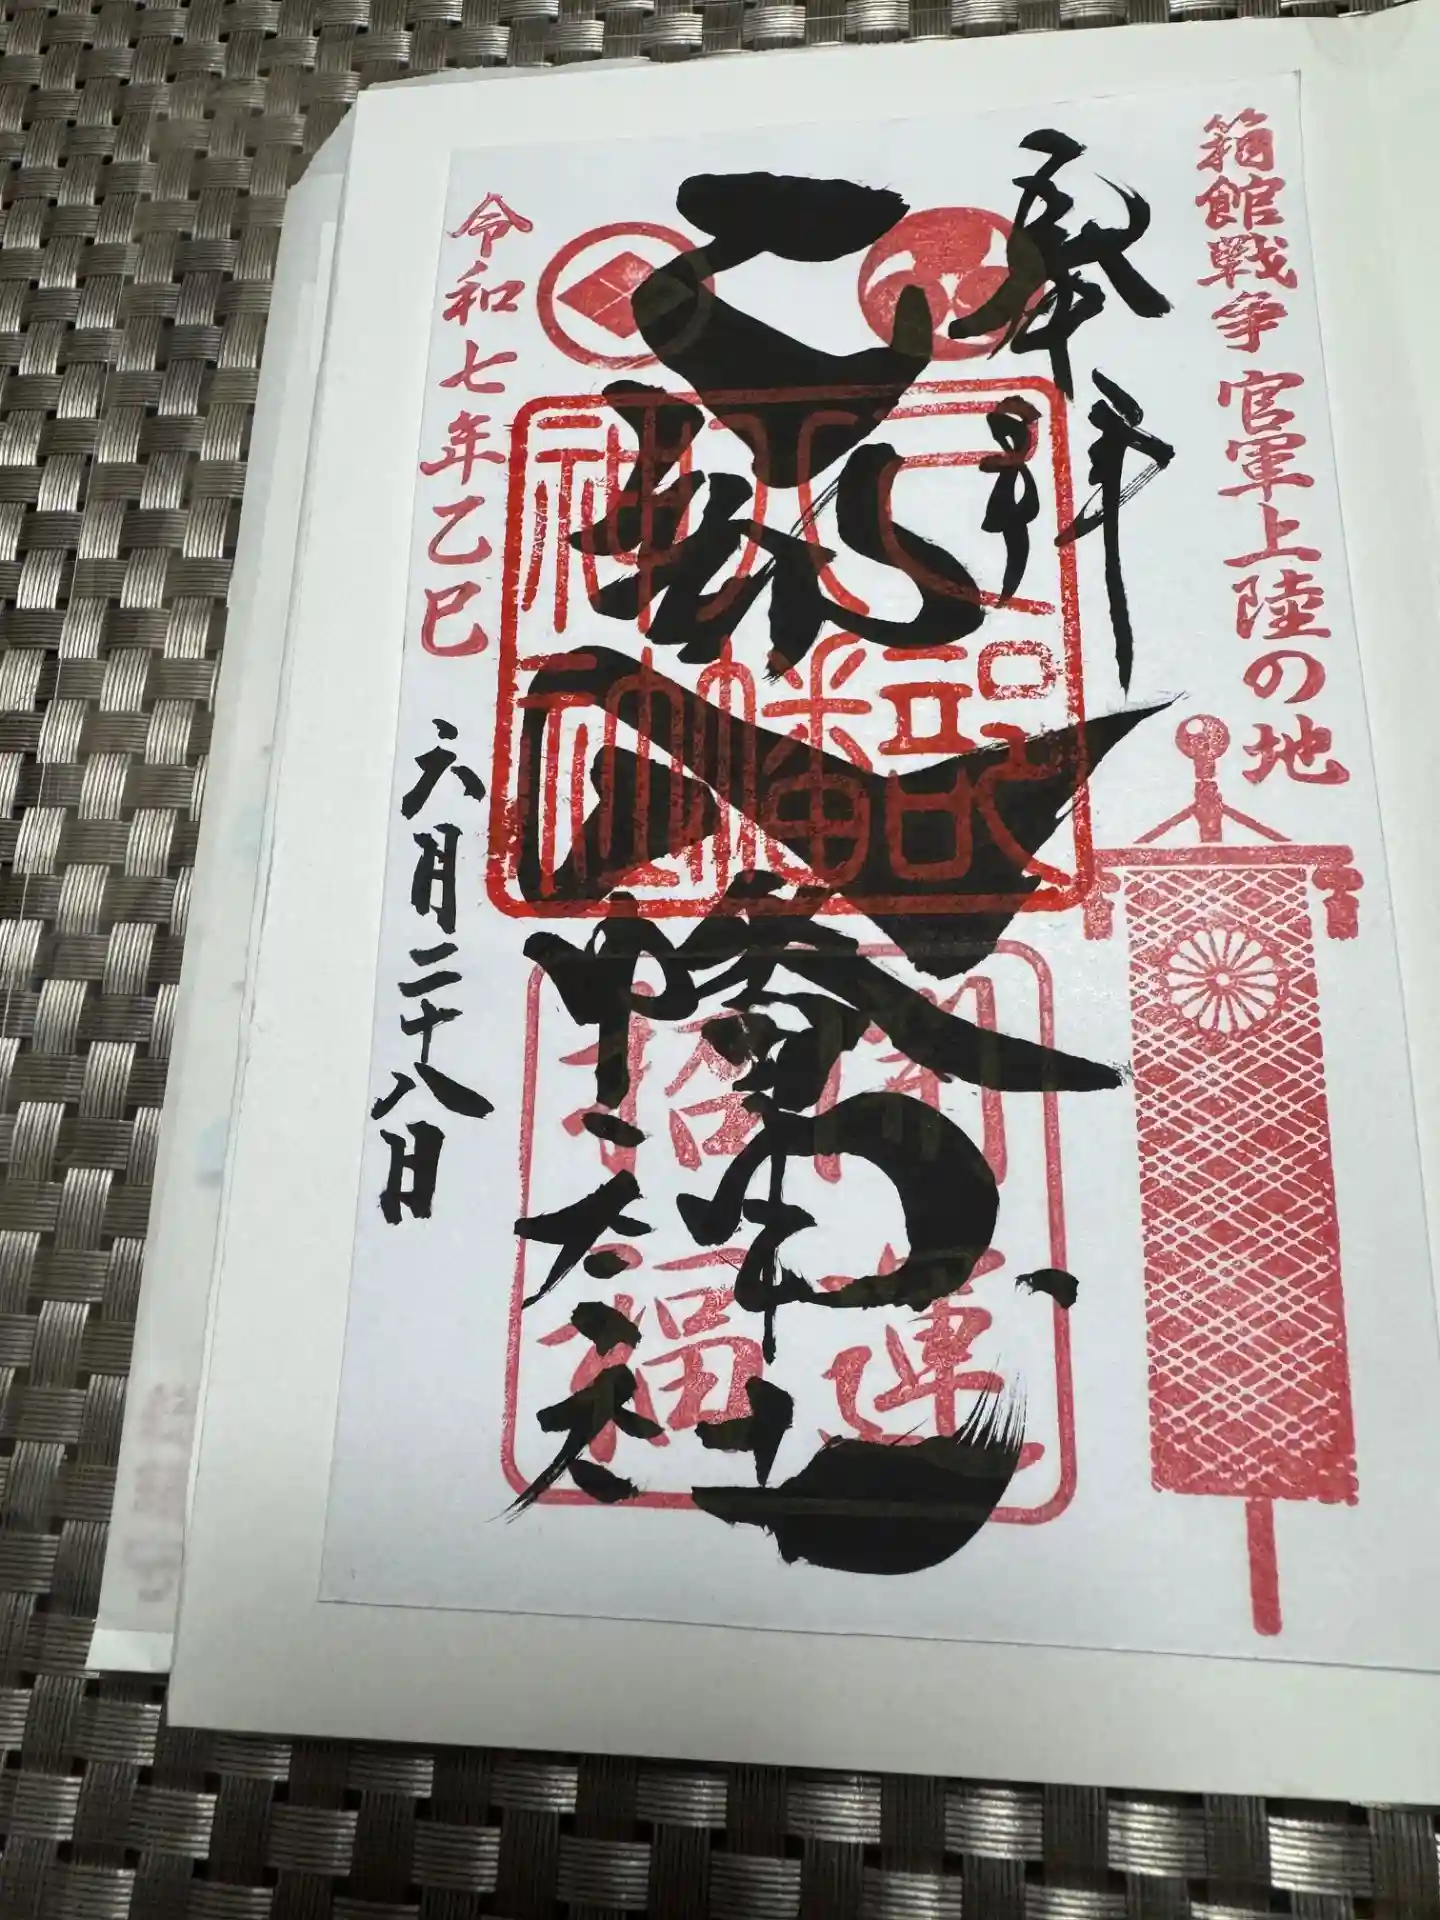 箱館戦争 官軍上陸の地
奉拝
乙部八幡神社
乙部
八幡
神社
開運
招福
令和七年乙巳
六月二十八日